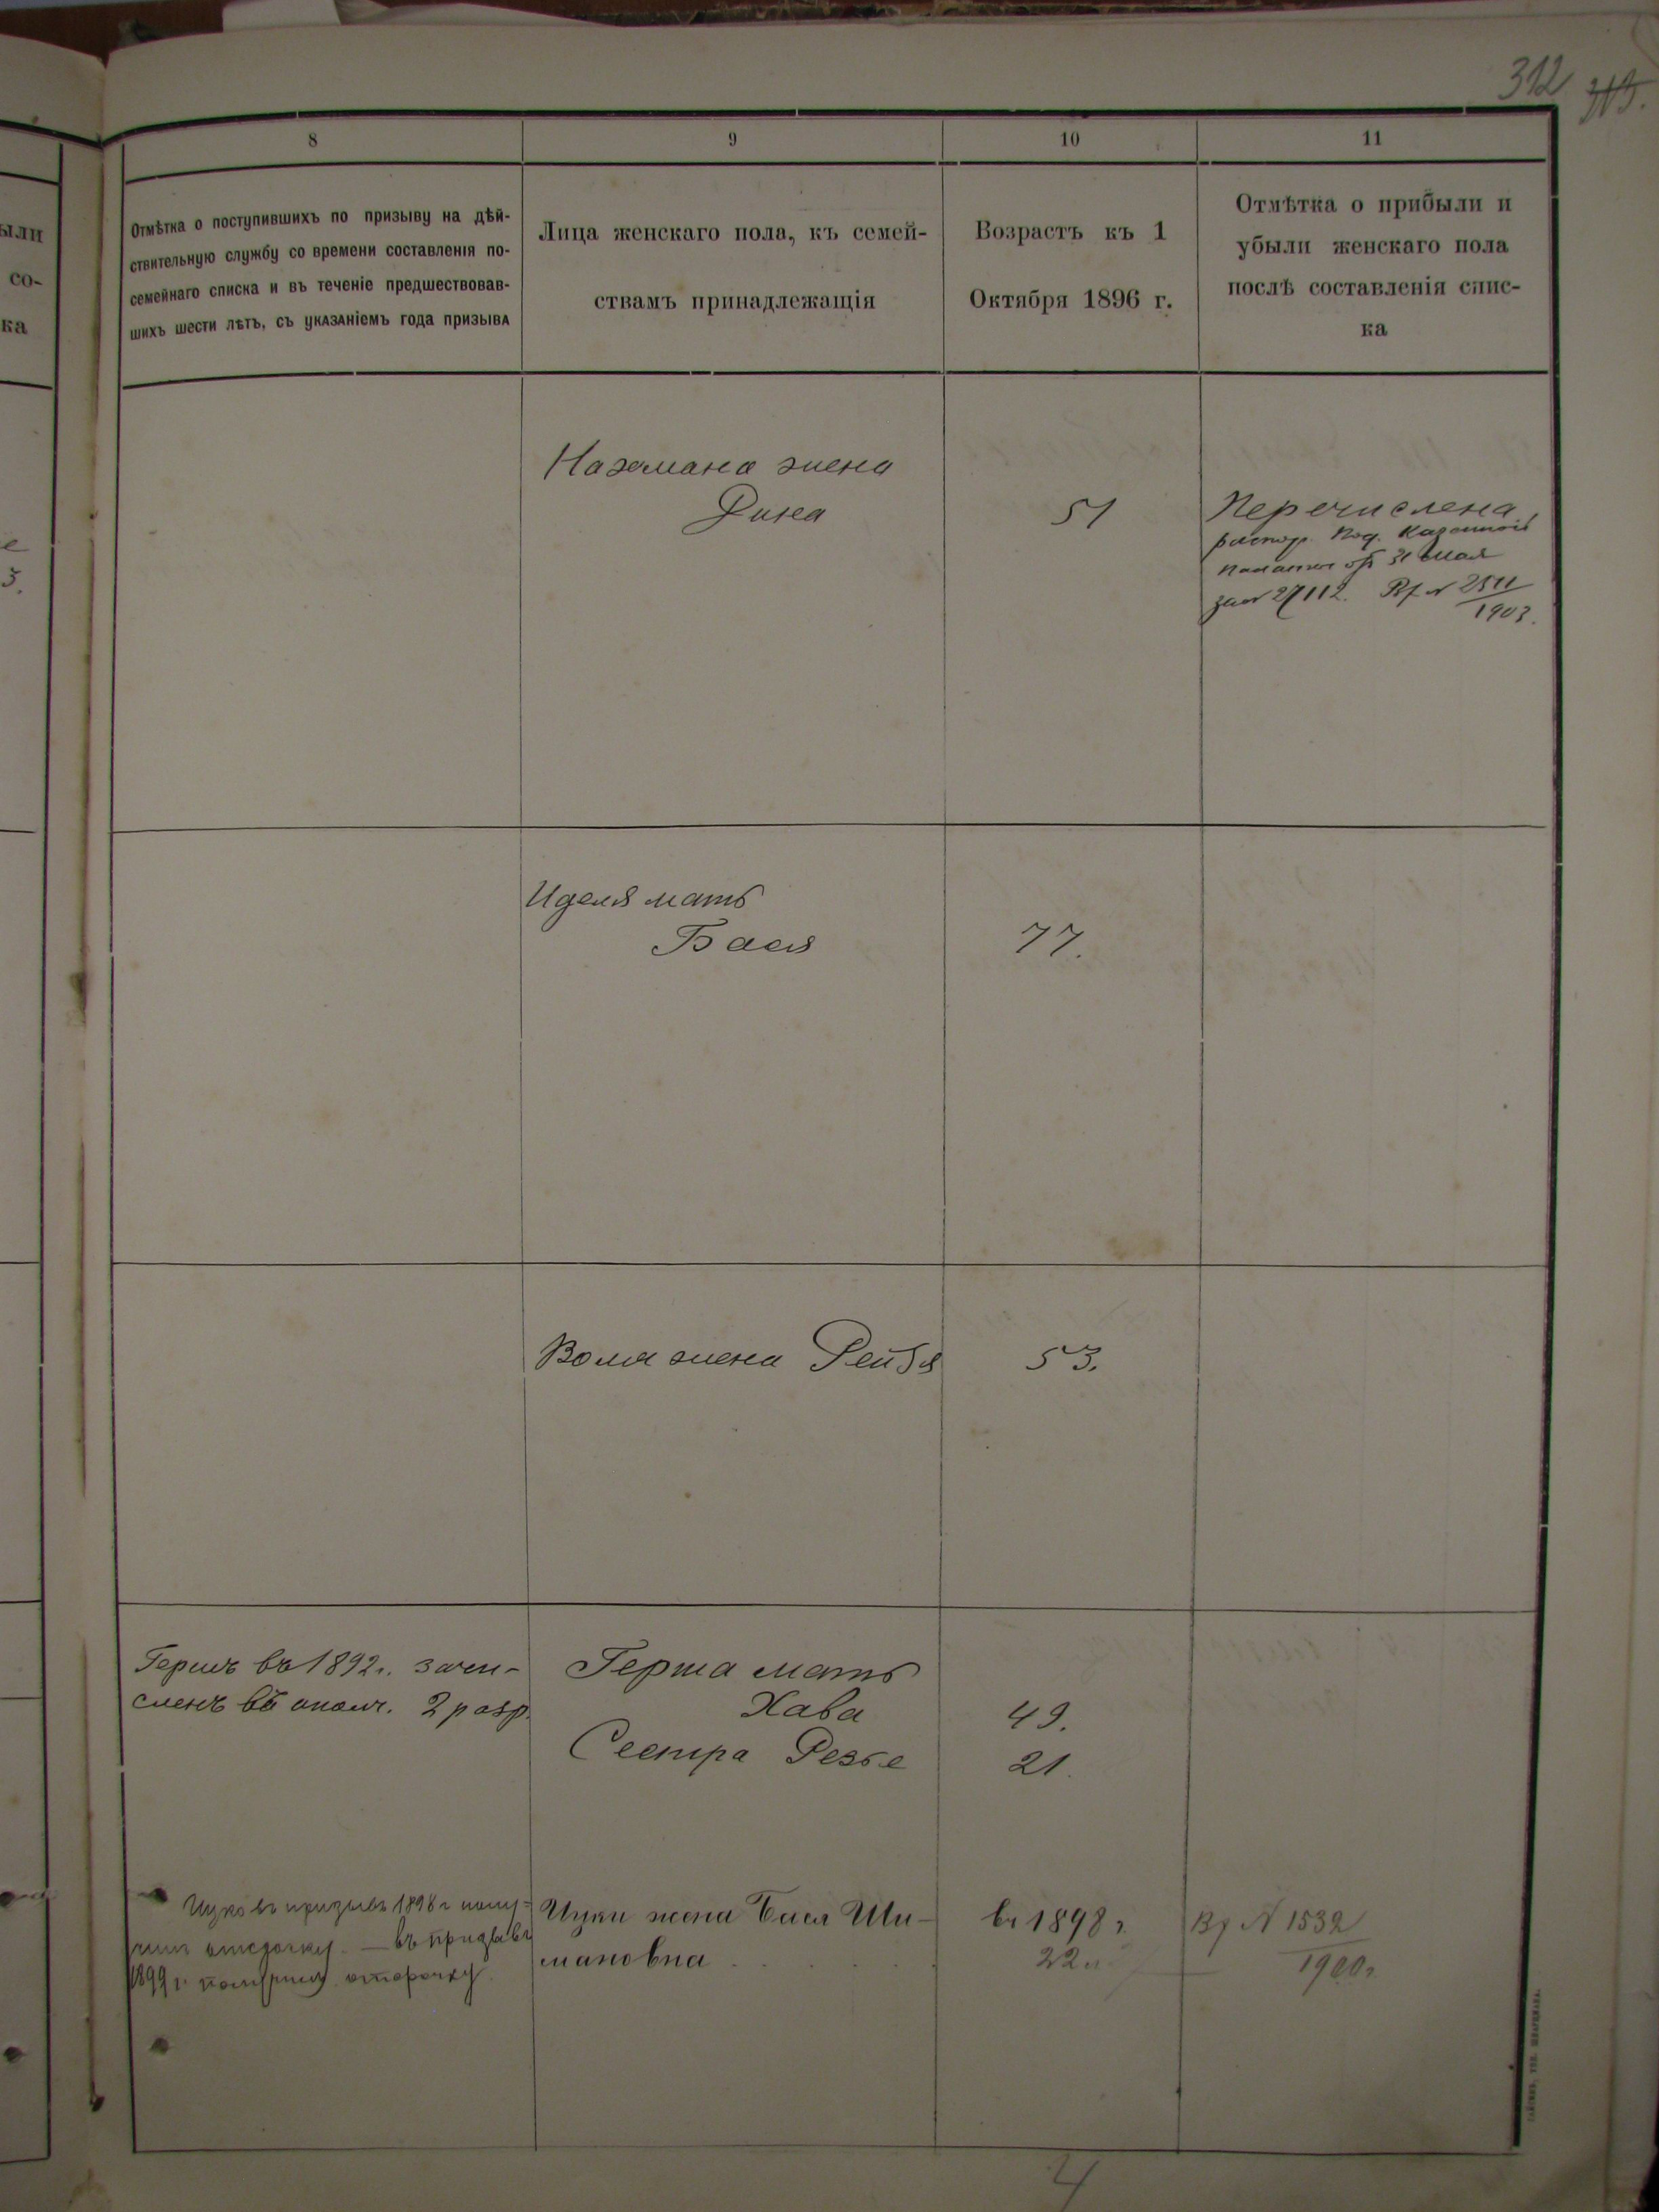 312
8
9
10
11
Отмѣтка о поступившихъ по призыву на дѣй-
ствительную службу со времени составленія по-
семейнаго списка и въ теченіе предшествовав-
шихъ шести лѣтъ, съ указаніемъ года призыва
Лица женскаго пола, къ семей-
ствамъ принадлежащія
Возрастъ къ 1
Октября 1896 г.
Отмѣтка о прибыли и
убыли женскаго пола
послѣ составленія спис-
ка
ыли
со-
ка
жена
51
Перечислена
распор. Под. Казенной
Палаты от 31 Мая
за № 27112. Вх № 2511
1903.
Иделя мать
Бася
77.
жена Рейзя
53.
Гершъ въ 1892 г. зачи-
сленъ въ ополч. 2 разр.
Герша мать
Хава
49.
Сестра
21.
Ицко въ призывъ 1898 г полу-
чилъ отсрочку. — въ призывъ
1899 г. получилъ отсрочку.
Ицки жена Бася Ши-
мановна
въ 1898 г.
22 л.
Вх № 1532
1900 г.
4